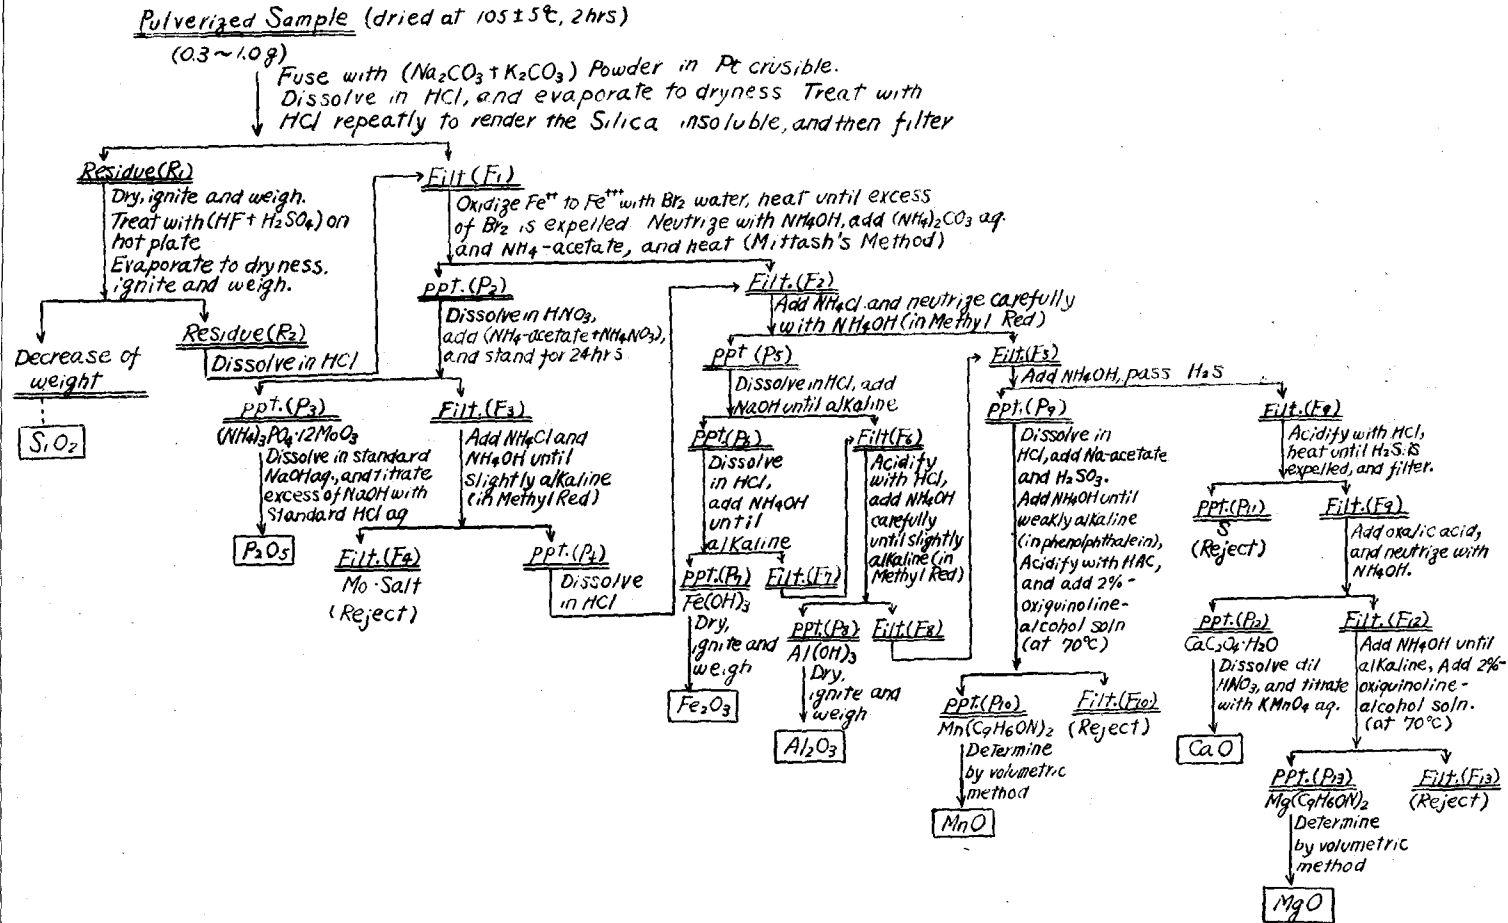 Pulverized Sample (dried at 105±5℃, 2hrs)
(0.3~1.0g)
Fuse with (Na₂CO₃+K₂CO₃) Powder in Pt crusible.
Dissolve in HCl, and evaporate to dryness Treat with
HCl repeatly to render the Silica insoluble, and then filter
Residue(R₁)
Dry, ignite and weigh.
Treat with (HF+H₂SO₄) on
hot plate
Evaporate to dryness.
ignite and weigh.
Decrease of
weight
SiO₂
Residue(R₂)
Dissolve in HCl
Filt.(F₁)
Oxidize Fe⁺⁺ to Fe⁺⁺⁺ with Br₂ water, heat until excess
of Br₂ is expelled Neutrize with NH₄OH, add (NH₄)₂CO₃ aq.
and NH₄-acetate, and heat (Mittash's Method)
ppt.(P₂)
Dissolve in HNO₃,
add (NH₄-acetate+NH₄NO₃),
and stand for 24hrs
PPt.(P₃)
(NH₄)₃PO₄·12MoO₃
Dissolve in standard
NaOH aq., and titrate
excess of NaOH with
Standard HCl aq
P₂O₅
Filt.(F₃)
Add NH₄Cl and
NH₄OH until
slightly alkaline
(in Methyl Red)
Filt.(F₄)
Mo-Salt
(Reject)
PPt.(P₄)
Dissolve
in HCl
Filt.(F₂)
Add NH₄Cl and neutrize carefully
with NH₄OH (in Methyl Red)
PPt (P₅)
Dissolve in HCl, add
NaOH until alkaline
PPt(P₆)
Dissolve
in HCl,
add NH₄OH
until
alkaline
PPt.(P₇)
Fe(OH)₃
Dry,
ignite and
weigh
Fe₂O₃
Filt.(F₇)
Filt(F₆)
Acidify
with HCl,
add NH₄OH
carefully
until slightly
alkaline (in
Methyl Red)
PPt.(P₈)
Al(OH)₃
Dry,
ignite and
weigh
Al₂O₃
Filt.(F₈)
Filt.(F₅)
Add NH₄OH, pass H₂S
PPt.(P₉)
Dissolve in
HCl, add Na-acetate
and H₂SO₃.
Add NH₄OH until
weakly alkaline
(in phenolphthalein),
Acidify with HAC,
and add 2%-
oxiquinoline-
alcohol soln
(at 70℃)
PPt.(P₁₀)
Mn(C₉H₆ON)₂
Determine
by volumetric
method
MnO
Filt.(F₁₀)
(Reject)
Filt.(F₉)
Acidify with HCl,
heat until H₂S is
expelled, and filter.
PPt.(P₁₁)
S
(Reject)
Filt.(F₉)
Add oxalic acid,
and neutrize with
NH₄OH.
PPt.(P₁₂)
CaC₂O₄·H₂O
Dissolve dil
HNO₃, and titrate
with KMnO₄ aq.
CaO
Filt.(F₁₂)
Add NH₄OH until
alkaline, Add 2%-
oxiquinoline-
alcohol soln.
(at 70℃)
PPt.(P₁₃)
Mg(C₉H₆ON)₂
Determine
by volumetric
method
MgO
Filt.(F₁₃)
(Reject)